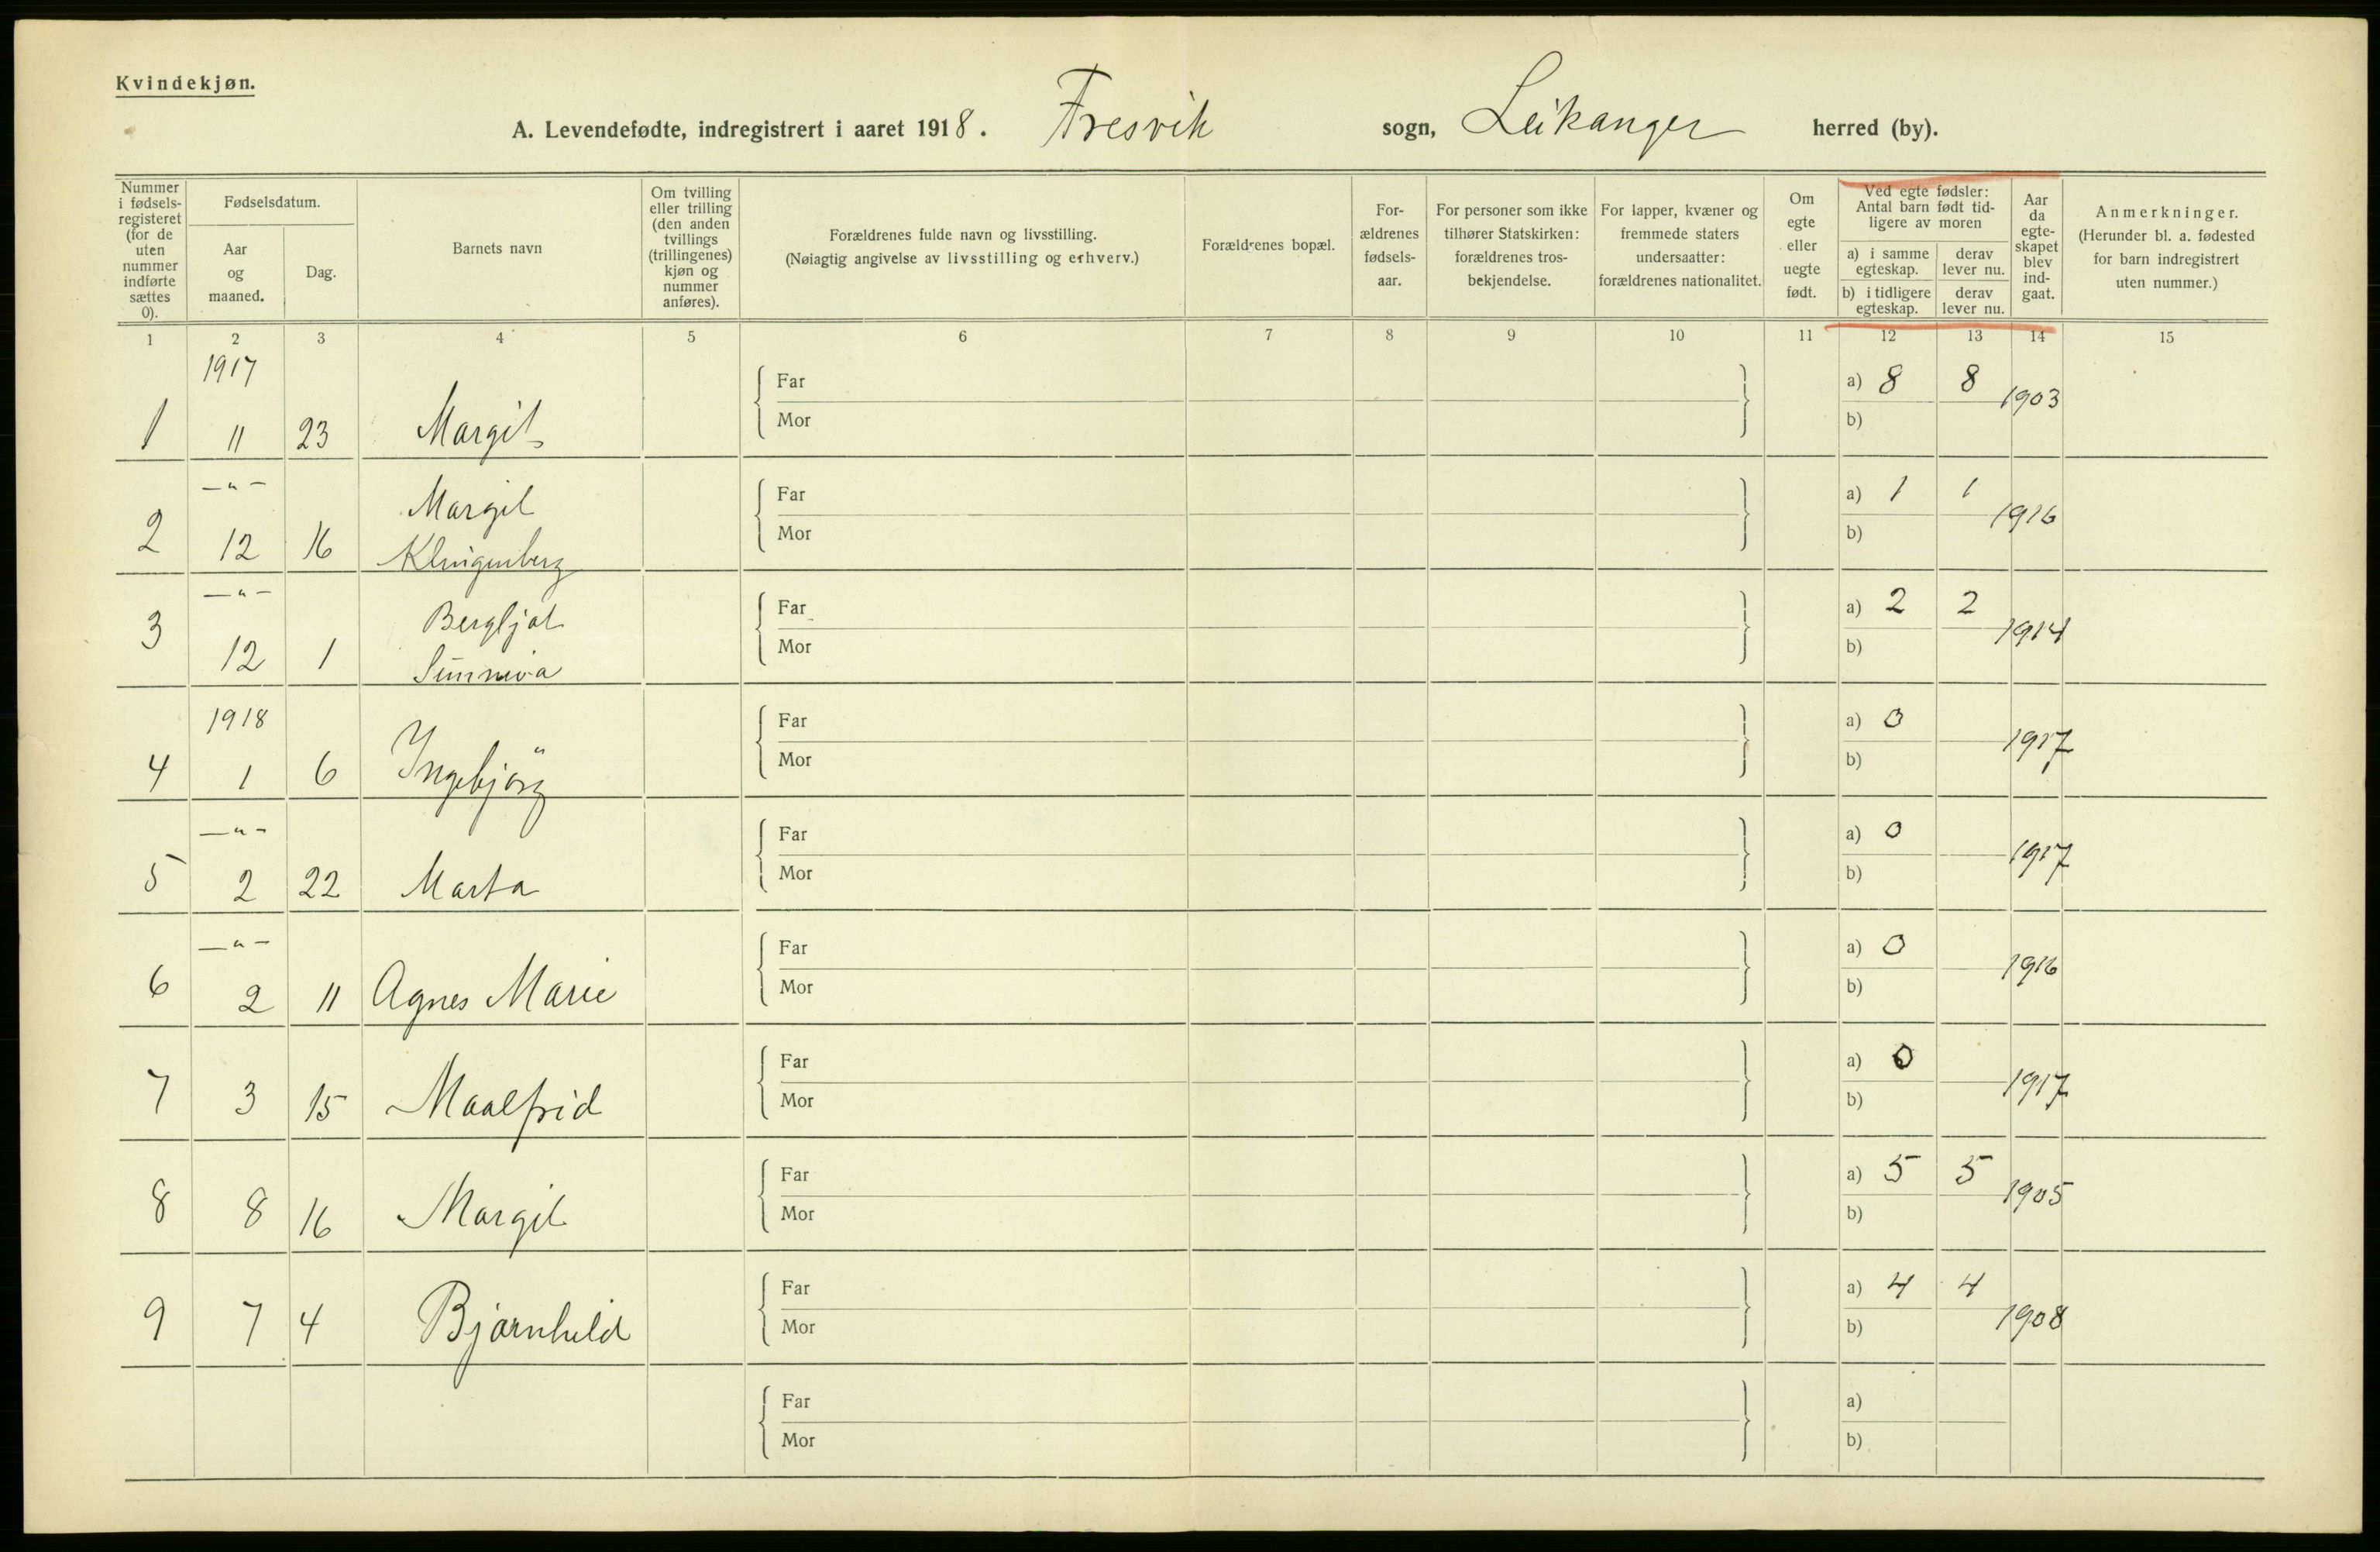 Kvindekjøn.
A. Levendefødte, indregistrert i aaret 1918. Fresvik sogn, Leikanger herred (by).
Nummer i fødsels-registeret (for de uten nummer indførte sættes 0).
Fødselsdatum.
Aar og maaned.
Dag.
Barnets navn
Om tvilling eller trilling (den anden tvillings (trillingenes) kjøn og nummer anføres).
Forældrenes fulde navn og livsstilling.
(Nøiagtig angivelse av livsstilling og erhverv.)
Forældrenes bopæl.
For-ældrenes fødsels-aar.
For personer som ikke tilhører Statskirken: forældrenes tros-bekjendelse.
For lapper, kvæner og fremmede staters undersaatter: forældrenes nationalitet.
Om egte eller uegte født.
Ved egte fødsler: Antal barn født tid-ligere av moren
a) i samme egteskap.
derav lever nu.
b) i tidligere egteskap.
derav lever nu.
Aar da egte-skapet blev ind-gaat.
Anmerkninger.
(Herunder bl. a. fødested for barn indregistrert uten nummer.)
1 2 3 4 5 6 7 8 9 10 11 12 13 14 15
1917
Far a) 8 8 1903
1 11 23 Margit Mor b)
—„— Margit Far a) 1 1 1916
2 12 16 Klingenberg Mor b)
—„— Bergljot Far a) 2 2 1914
3 12 1 Sunniva Mor b)
1918 Far a) 0 1917
4 1 6 Ingebjörg Mor b)
—„— Far a) 0 1917
5 2 22 Marta Mor b)
—„— Far a) 0 1916
6 2 11 Agnes Marie Mor b)
Far a) 0 1917
7 3 15 Maalfrid Mor b)
Far a) 5 5 1905
8 8 16 Margit Mor b)
Far a) 4 4 1908
9 7 4 Bjarnhild Mor b)
Far a)
Mor b)